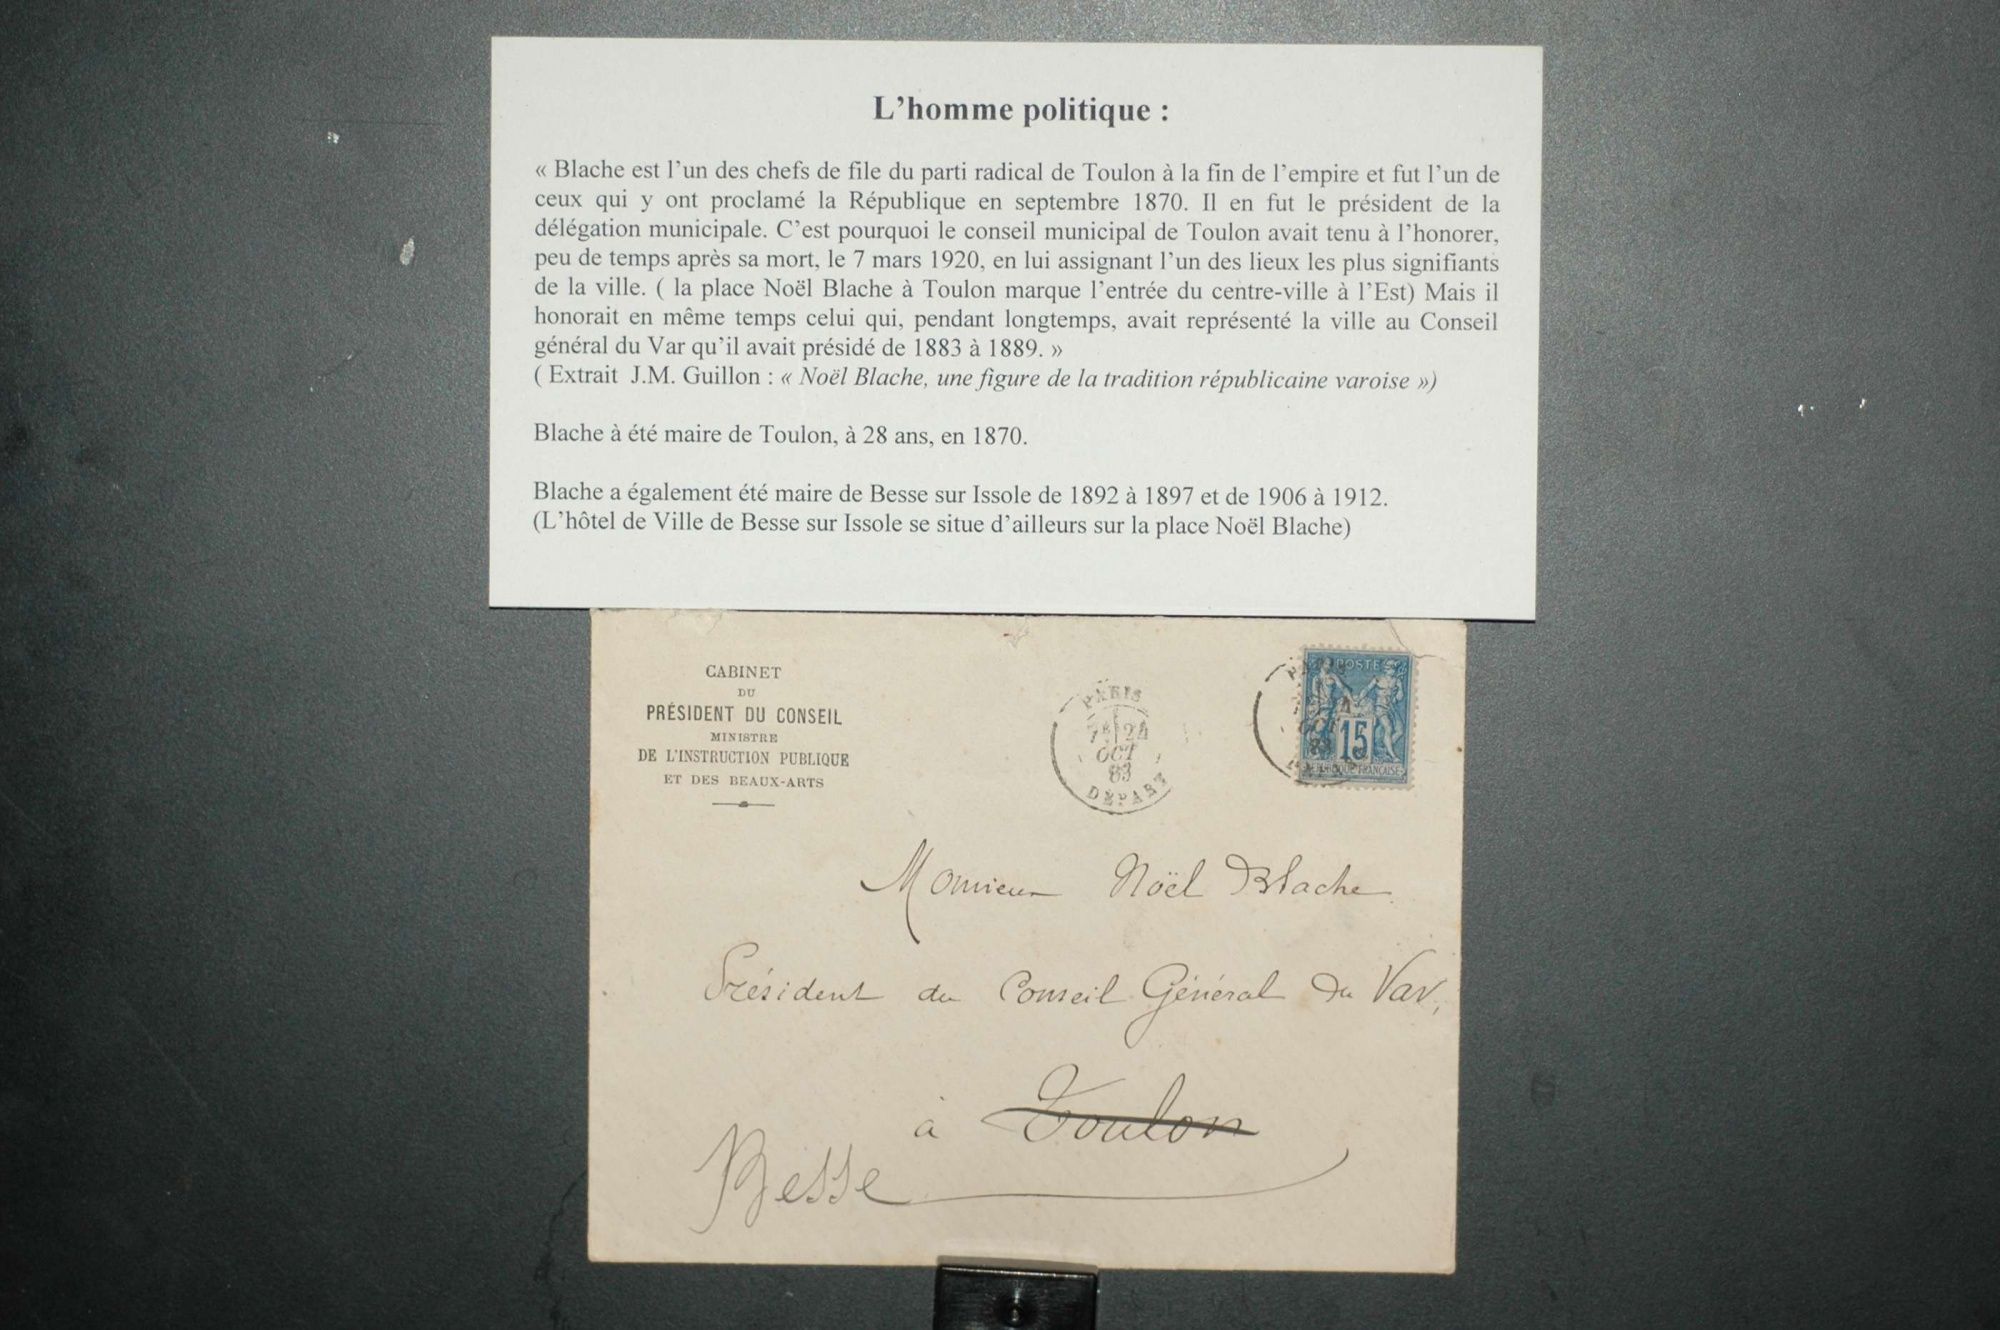 L’homme politique :
« Blache est l’un des chefs de file du parti radical de Toulon à la fin de l’empire et fut l’un de
ceux qui y ont proclamé la République en septembre 1870. Il en fut le président de la
délégation municipale. C’est pourquoi le conseil municipal de Toulon avait tenu à l’honorer,
peu de temps après sa mort, le 7 mars 1920, en lui assignant l’un des lieux les plus signifiants
de la ville. ( la place Noël Blache à Toulon marque l’entrée du centre-ville à l’Est) Mais il
honorait en même temps celui qui, pendant longtemps, avait représenté la ville au Conseil
général du Var qu’il avait présidé de 1883 à 1889. »
( Extrait J.M. Guillon : « Noël Blache, une figure de la tradition républicaine varoise »)
Blache à été maire de Toulon, à 28 ans, en 1870.
Blache a également été maire de Besse sur Issole de 1892 à 1897 et de 1906 à 1912.
(L’hôtel de Ville de Besse sur Issole se situe d’ailleurs sur la place Noël Blache)
CABINET
DU
PRÉSIDENT DU CONSEIL
MINISTRE
DE L'INSTRUCTION PUBLIQUE
ET DES BEAUX-ARTS
PARIS
24
OCT
83
DÉPART
POSTES
15
REPUBLIQUE FRANÇAISE
Monsieur Noël Blache
Président du Conseil Général du Var,
à Toulon
Besse